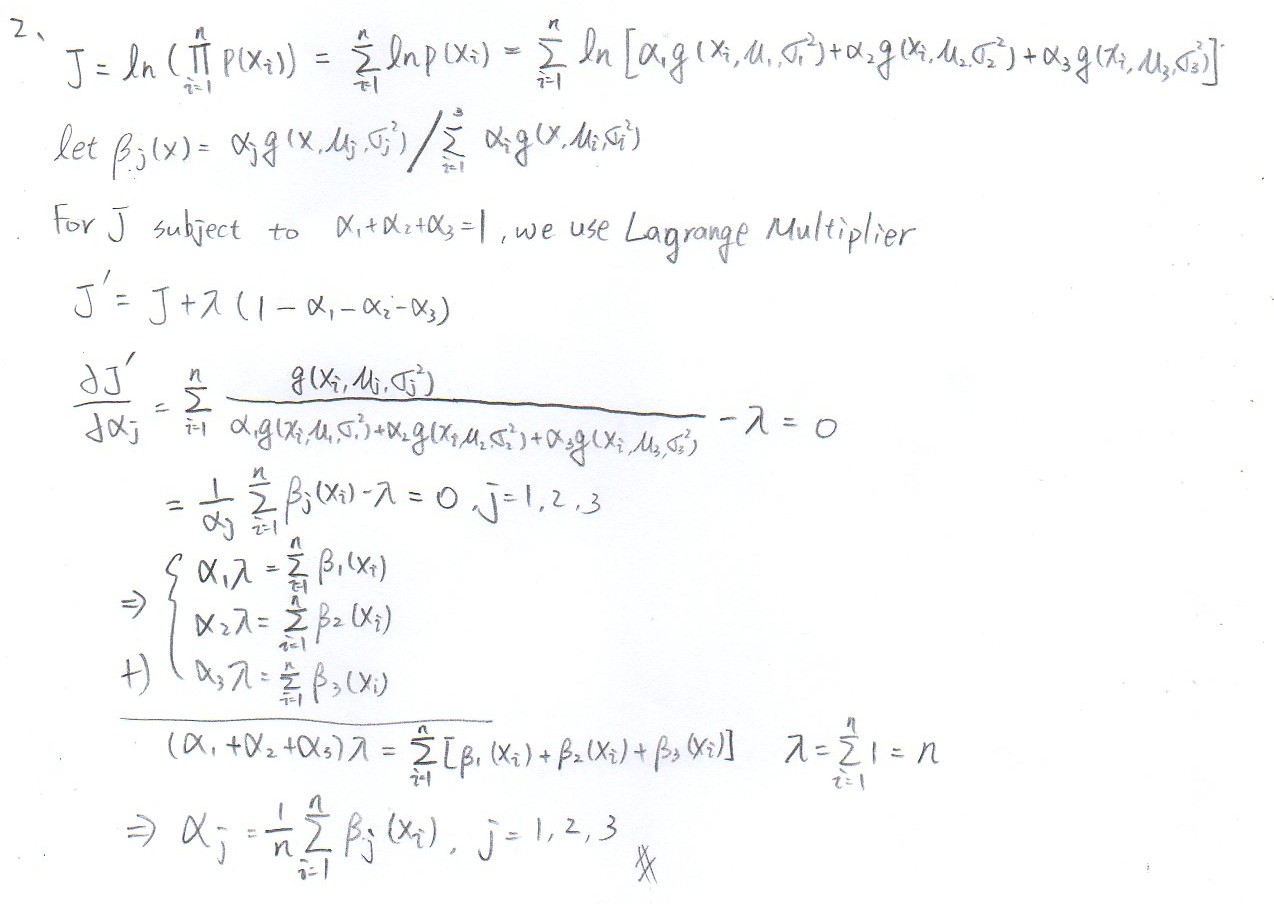 2、
J = ln (∏_{i=1}^{n} p(x_i)) = Σ_{i=1}^{n} ln p(x_i) = Σ_{i=1}^{n} ln [α_1 g(x_i, μ_1, σ_1^2) + α_2 g(x_i, μ_2, σ_2^2) + α_3 g(x_i, μ_3, σ_3^2)]
let β_j(x) = α_j g(x, μ_j, σ_j^2) / Σ_{i=1}^{3} α_i g(x, μ_i, σ_i^2)
For J subject to α_1+α_2+α_3=1, we use Lagrange Multiplier
J' = J + λ(1 - α_1 - α_2 - α_3)
∂J'/∂α_j = Σ_{i=1}^{n} g(x_i, μ_j, σ_j^2) / (α_1 g(x_i, μ_1, σ_1^2) + α_2 g(x_i, μ_2, σ_2^2) + α_3 g(x_i, μ_3, σ_3^2)) - λ = 0
= 1/α_j Σ_{i=1}^{n} β_j(x_i) - λ = 0, j=1,2,3
⇒ { α_1 λ = Σ_{i=1}^{n} β_1(x_i)
α_2 λ = Σ_{i=1}^{n} β_2(x_i)
+) α_3 λ = Σ_{i=1}^{n} β_3(x_i)
(α_1 + α_2 + α_3) λ = Σ_{i=1}^{n} [β_1(x_i) + β_2(x_i) + β_3(x_i)] λ = Σ_{i=1}^{n} 1 = n
⇒ α_j = 1/n Σ_{i=1}^{n} β_j(x_i), j = 1, 2, 3 #